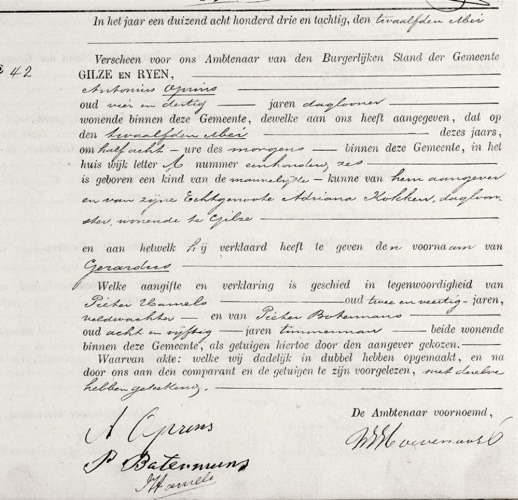 In het jaar een duizend acht honderd drie en tachtig, den twaalfden Mei
42
Verscheen voor ons Ambtenaar van den Burgerlijken Stand der Gemeente
GILZE EN RYEN,
Antonius Oprins
oud vier en dertig jaren daglooner
wonende binnen deze Gemeente, dewelke aan ons heeft aangegeven, dat op
den twaalfden Mei dezes jaars,
om half acht ure des morgens binnen deze Gemeente, in het
huis wijk letter A nummer eenhonderd zes
is geboren een kind van de mannelijke kunne van hem aangever
en van zijne Echtgenoote Adriana Kokken, dagloon-
ster, wonende te Gilze
en aan hetwelk hij verklaard heeft te geven den voornaam van
Gerardus
Welke aangifte en verklaring is geschied in tegenwoordigheid van
Pieter Hamels oud twee en veertig jaren,
veldwachter en van Pieter Botermans
oud acht en vijftig jaren timmerman beide wonende
binnen deze Gemeente, als getuigen hiertoe door den aangever gekozen.
Waarvan akte: welke wij dadelijk in dubbel hebben opgemaakt, en na
door ons aan den comparant en de getuigen te zijn voorgelezen, met dezelve
hebben geteekend.
De Ambtenaar voornoemd,
A Oprins
P Botermans
P Hamels